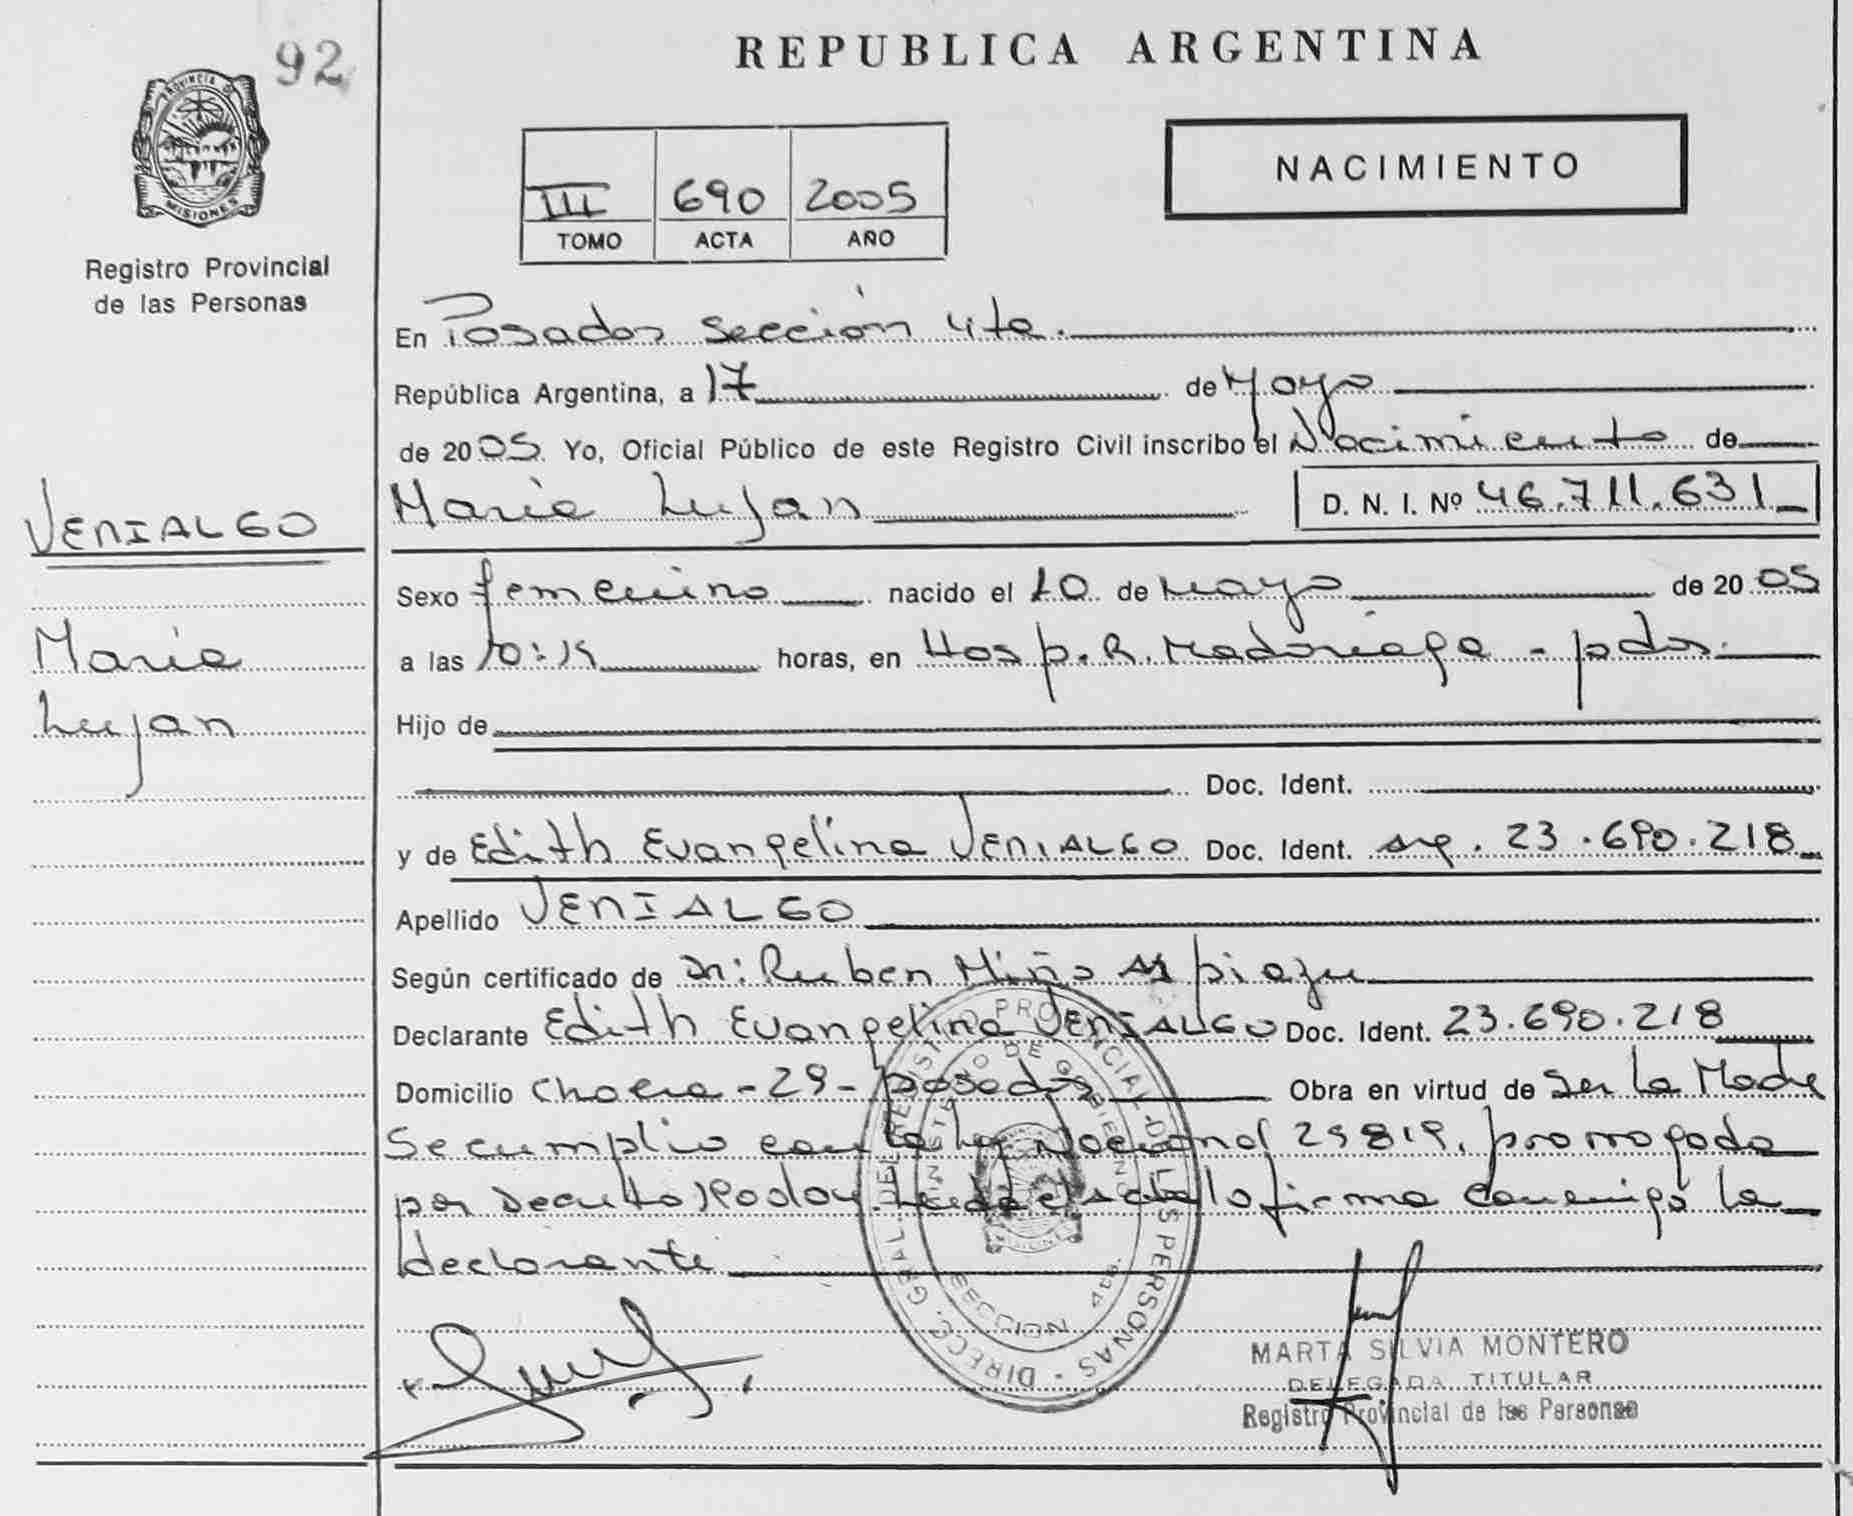 92
REPUBLICA ARGENTINA
PROVINCIA DE
MISIONES
Registro Provincial
de las Personas
NACIMIENTO
III 690 2005
TOMO ACTA AÑO
En Posadas Sección 4ta.
República Argentina, a 17 de Mayo
de 2005 Yo, Oficial Público de este Registro Civil inscribo el Nacimiento de
Maria Lujan D. N. I. Nº 46.711.631
VENIALGO
Maria
Lujan
Sexo femenino nacido el 10 de Mayo de 2005
a las horas, en Hosp. R. Madariaga - pdas.
Hijo de
Doc. Ident.
y de Edith Evangelina VENIALGO Doc. Ident. arg. 23.690.218
Apellido VENIALGO
Según certificado de Dr: Ruben Miño
Declarante Edith Evangelina VENIALGO Doc. Ident. 23.690.218
Domicilio Chacra - 29 - posadas Obra en virtud de Ser la Madre
Se cumplio con la Ley Nacional prorrogada
por Decreto la firma conmigo la
declarante
DIRECC. GRAL. DEL REGISTRO PROVINCIAL DE LAS PERSONAS
MINISTERIO DE GOBIERNO
SECCION
MISIONES
MARTA SILVIA MONTERO
DELEGADA TITULAR
Registro Provincial de las Personas